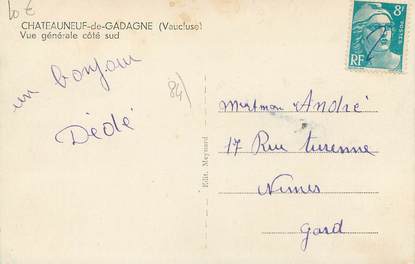 10 €
CHATEAUNEUF-de-GADAGNE (Vaucluse)
Vue générale côté sud
8F
POSTES
RF
un bonjour
Dédé
84)
Edit. Meynard
André
17 Rue Turenne
Nimes
Gard